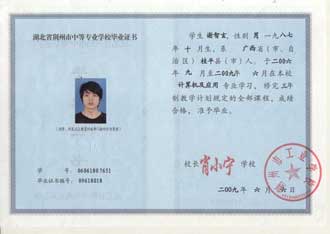 湖北省荆州市中等专业学校毕业证书
学 号 06061807651
毕业证书编号: 09618018
学生 谢智玄, 性别 男 一九八七
年 十 月生, 系 广西省(市、自
治区) 桂平县(市)人, 于二00六
年 九 月至二00九年 六月在本校
计算机及应用 专业学习, 修完 三年
制教学计划规定的全部课程, 成绩
合格, 准予毕业。
校长 肖小宁 学校
二00九 年 六 月 六 日